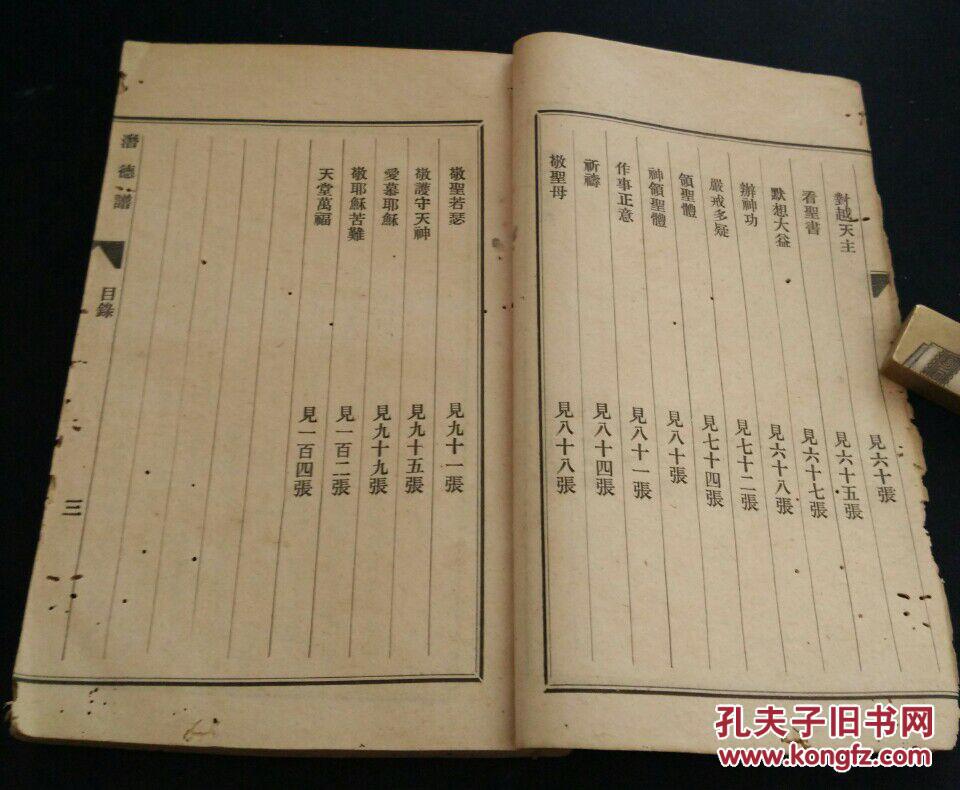 對越天主 見六十張
看聖書 見六十五張
默想大益 見六十七張
辦神功 見六十八張
嚴戒多疑 見七十二張
領聖體 見七十四張
神領聖體 見八十張
作事正意 見八十一張
祈禱 見八十四張
敬聖母 見八十八張
敬聖若瑟 見九十一張
敬護守天神 見九十五張
愛慕耶穌 見九十九張
敬耶穌苦難 見一百二張
天堂萬福 見一百四張
潛德譜 目錄 三
孔夫子旧书网
www.kongfz.com